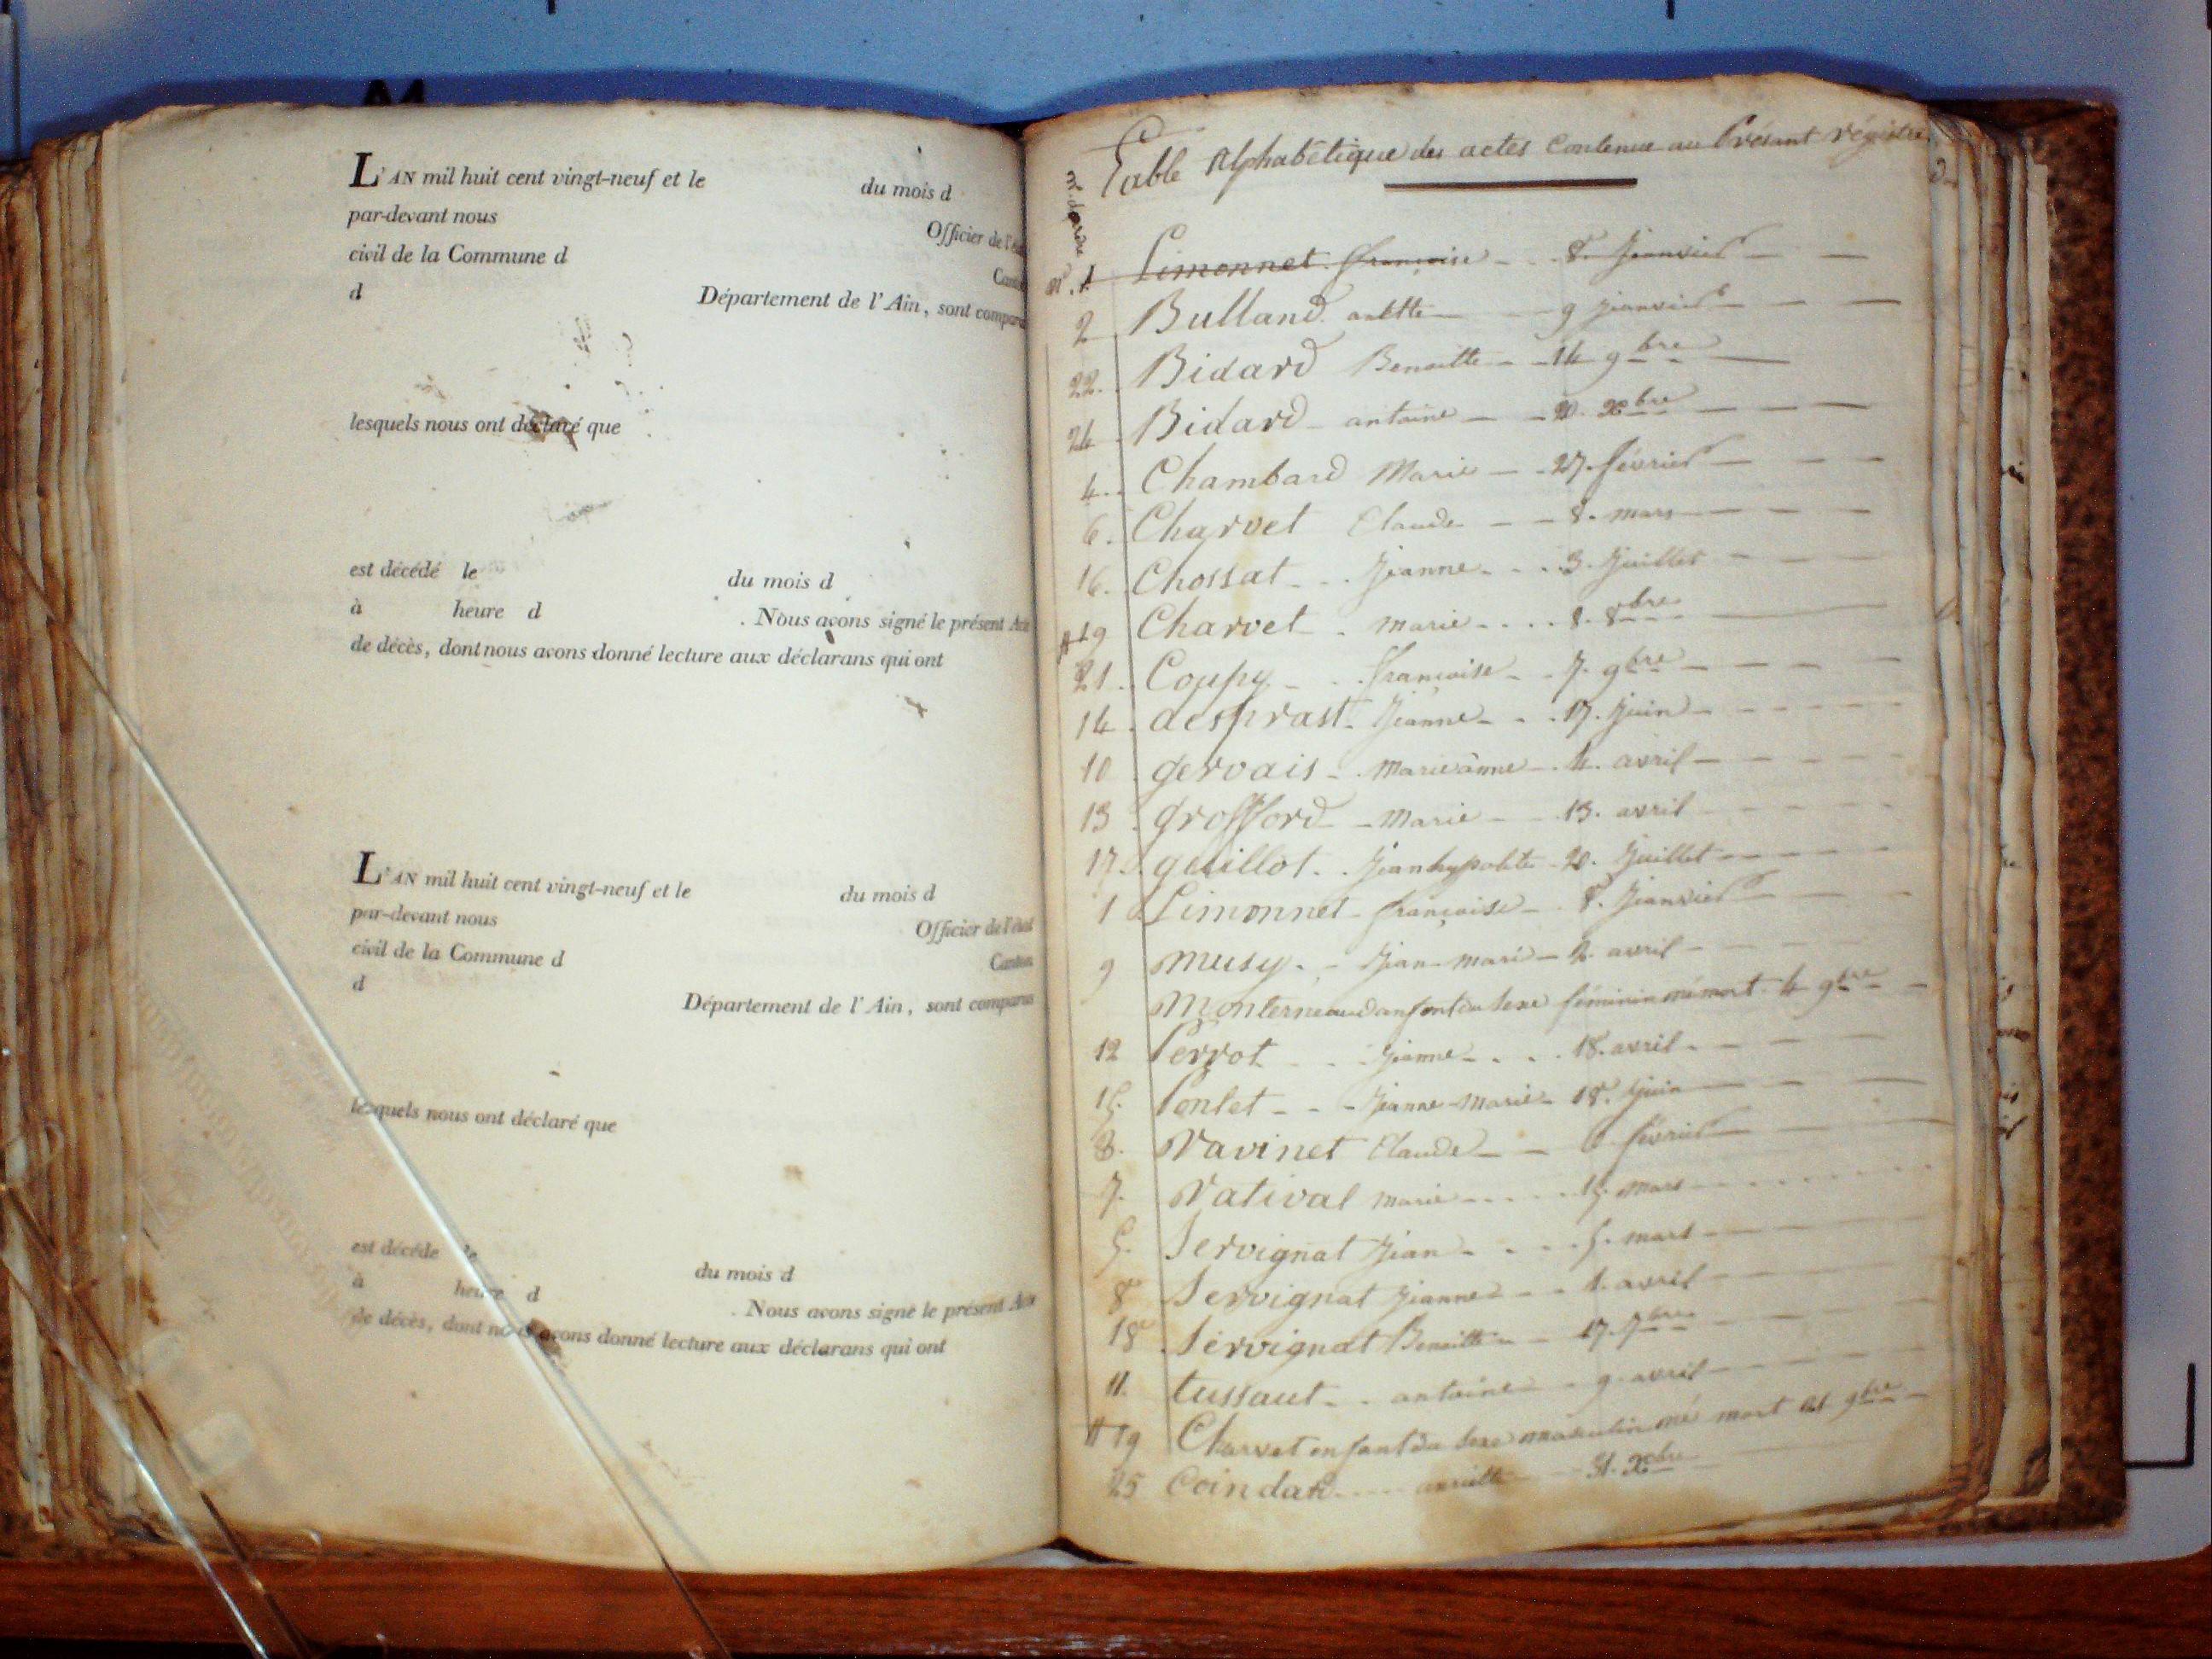 L'AN mil huit cent vingt-neuf et le du mois d
par-devant nous Officier de l'
civil de la Commune d
d Département de l'Ain, sont comparus
lesquels nous ont déclaré que
est décédé le du mois d
à heure d . Nous avons signé le présent Acte
de décès, dont nous avons donné lecture aux déclarans qui ont
L'AN mil huit cent vingt-neuf et le du mois d
par-devant nous Officier de l'état
civil de la Commune d Canton
d Département de l'Ain, sont comparus
lesquels nous ont déclaré que
est décédé le du mois d
à heure d . Nous avons signé le présent Acte
de décès, dont nous avons donné lecture aux déclarans qui ont
Table Alphabétique des actes Contenue au Présant régistre
n.º 1 Limonnet françoise 8. Janvier
2 Bulland anette 9 janvier
22. Bidard Benoitte 14 9bre
24 Bidard antoine 20. Xbre
4 Chambard Marie 27. février
6. Charvet Claude 8. mars
16. Chossat Jeanne 3. Juillet
19 Charvet marie 8. 8bre
21 Coupy françoise 7. 9bre
14 desprast Jeanne 17. Juin
10 gervais marieanne 4. avril
13 groffford Marie 13. avril
17 guillot Jean hypolite 20. Juillet
1 Limonnet françoise 8. Janvier
9 musy Jean-marie 2. avril
Monterneaud anfant du sexe féminin né mort 4 9bre
12 Perrot Jeanne 18. avril
15. Ponlet Jeanne-Marie 18. Juin
3. Ravinet Claude 6 février
7. Ratival marie 15. mars
5. Servignat Jean 5. mars
8 Servignat Jeanne 1. avril
18 Servignat Benoitte 17. 7bre
11. tussaut antoine 9. avril
19 Charvet enfant du sexe masculin né mort 9bre
25 Coindat 31. Xbre